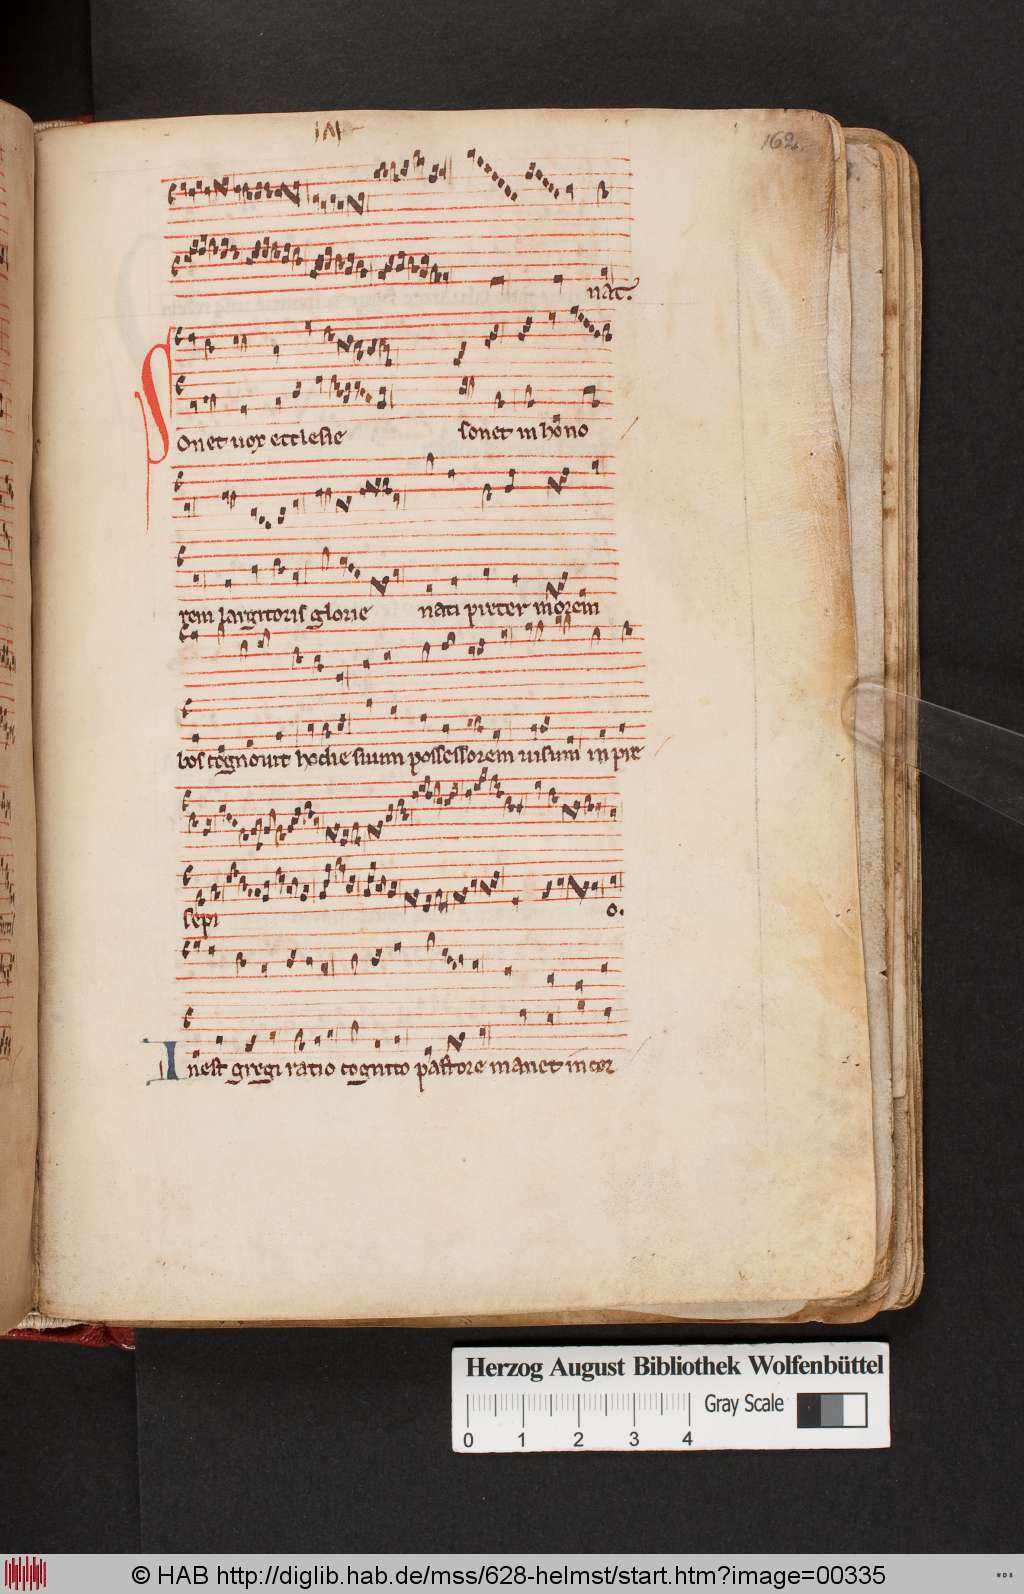 162.
nat.
Sonet uox ecclesie sonet in hono
rem largitoris glorie nati preter morem
bos cognouit hodie suum possessorem uisum in pre
sepi o.
Inest gregi ratio cognito pastore manet in cor
Herzog August Bibliothek Wolfenbüttel
Gray Scale
0 1 2 3 4
© HAB http://diglib.hab.de/mss/628-helmst/start.htm?image=00335